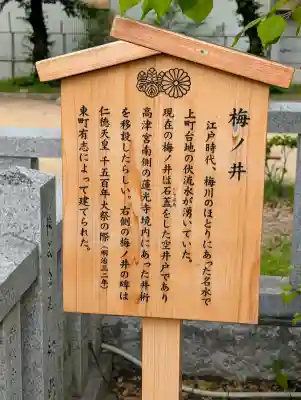 梅ノ井
江戸時代、梅川のほとりにあった名水で
上町台地の伏流水が湧いていた。
現在の梅ノ井は石蓋をした空井戸であり
いしぶた
高津宮南側の蓮光寺境内にあった井桁
を移設したらしい。右側の梅ノ井の碑は
仁徳天皇 千五百年大祭の際(明治三二年)
東町有志によって建てられた。